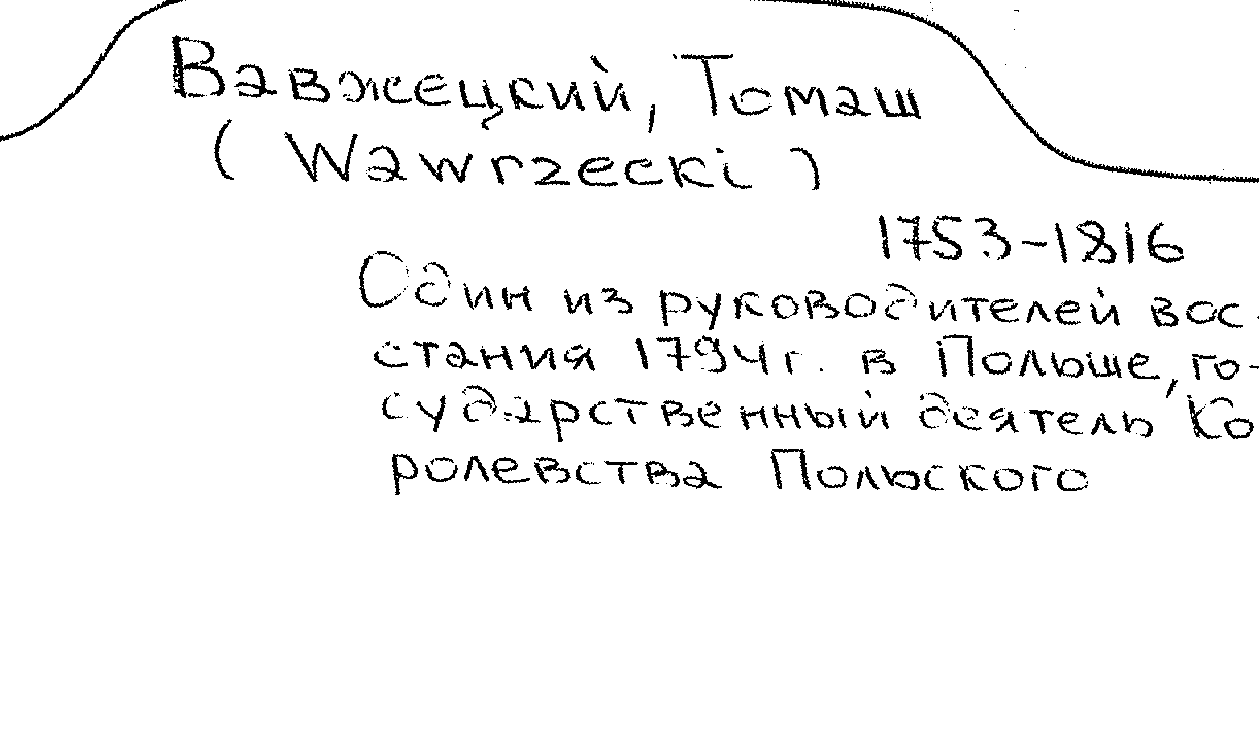 Вавжецкий, Томаш
(Wawrzecki)
1753-1816
Один из руководителей вос-
стания 1794 г. в Польше, го-
сударственный деятель Ко
ролевства Польского